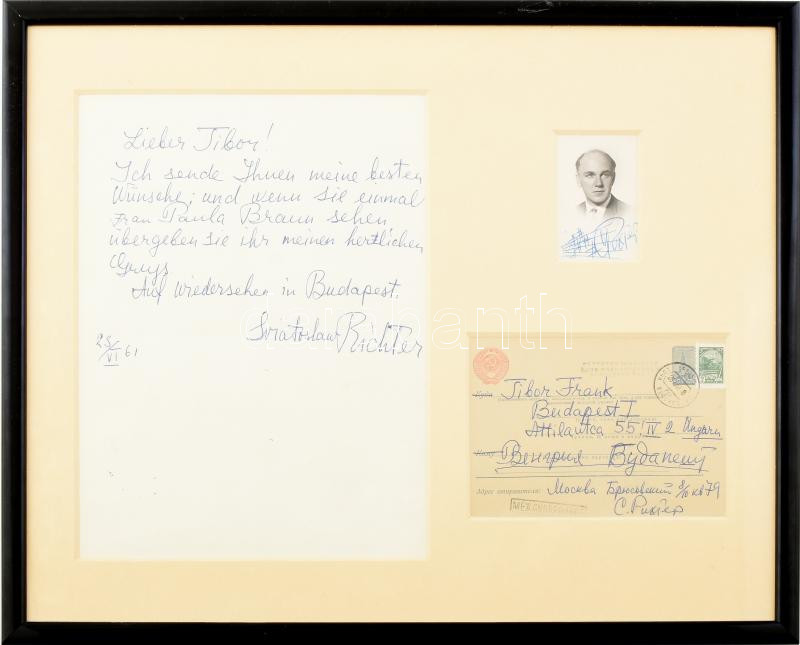 Lieber Tibor!
Ich sende Ihnen meine besten
Wünsche; und wenn Sie einmal
Frau Paula Braun sehen
übergeben Sie ihr meinen hertlichen
Gruss
Auf Wiedersehen in Budapest.
Sviatoslaw Richter
25/VI 61
Куда Tibor Frank
Budapest I
Attilautca 55 IV 2 Ungarn
Кому Венгрия Будапешт
Адрес отправителя: Москва Брюсовский 8/10 кв 79
С. Рихтер